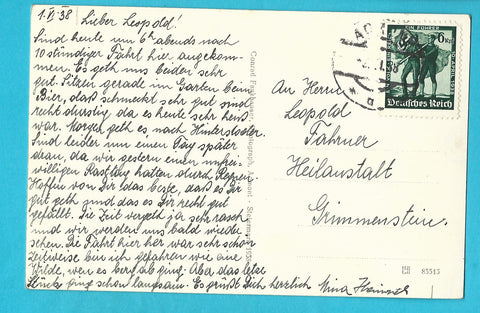 1.VI.38 Lieber Leopold!
Sind heute um 6h abends nach
10 stündiger Fahrt hier angekom-
men. Es geht uns beiden sehr
gut. Sitzen gerade im Garten beim
Bier, daß schmeckt sehr gut sind
recht durstig da es heute sehr heiß
war. Morgen geht es nach Hinterstoder.
Sind leider um einen Tag später
dran, da wir gestern einen unfrei-
willigen Rasttag hatten durch Regen.
Hoffen von Dir das beste, daß es Dir
gut geht und das es Dir recht gut
gefällt. Die Zeit vergeht ja sehr rasch
und wir werden uns bald wieder
sehen. Die Fahrt hier her war sehr schön
Zeitweise bin ich gefahren wie eine
Wilde, wen es berg ab ging. Aber das letze
Stück ging schon langsam. Es grüßt Dich herzlich Mina
An Herrn
Leopold
Fahrner
Heilanstalt
Grimmenstein.
EIN FÜHRER
6
Deutsches Reich
83515